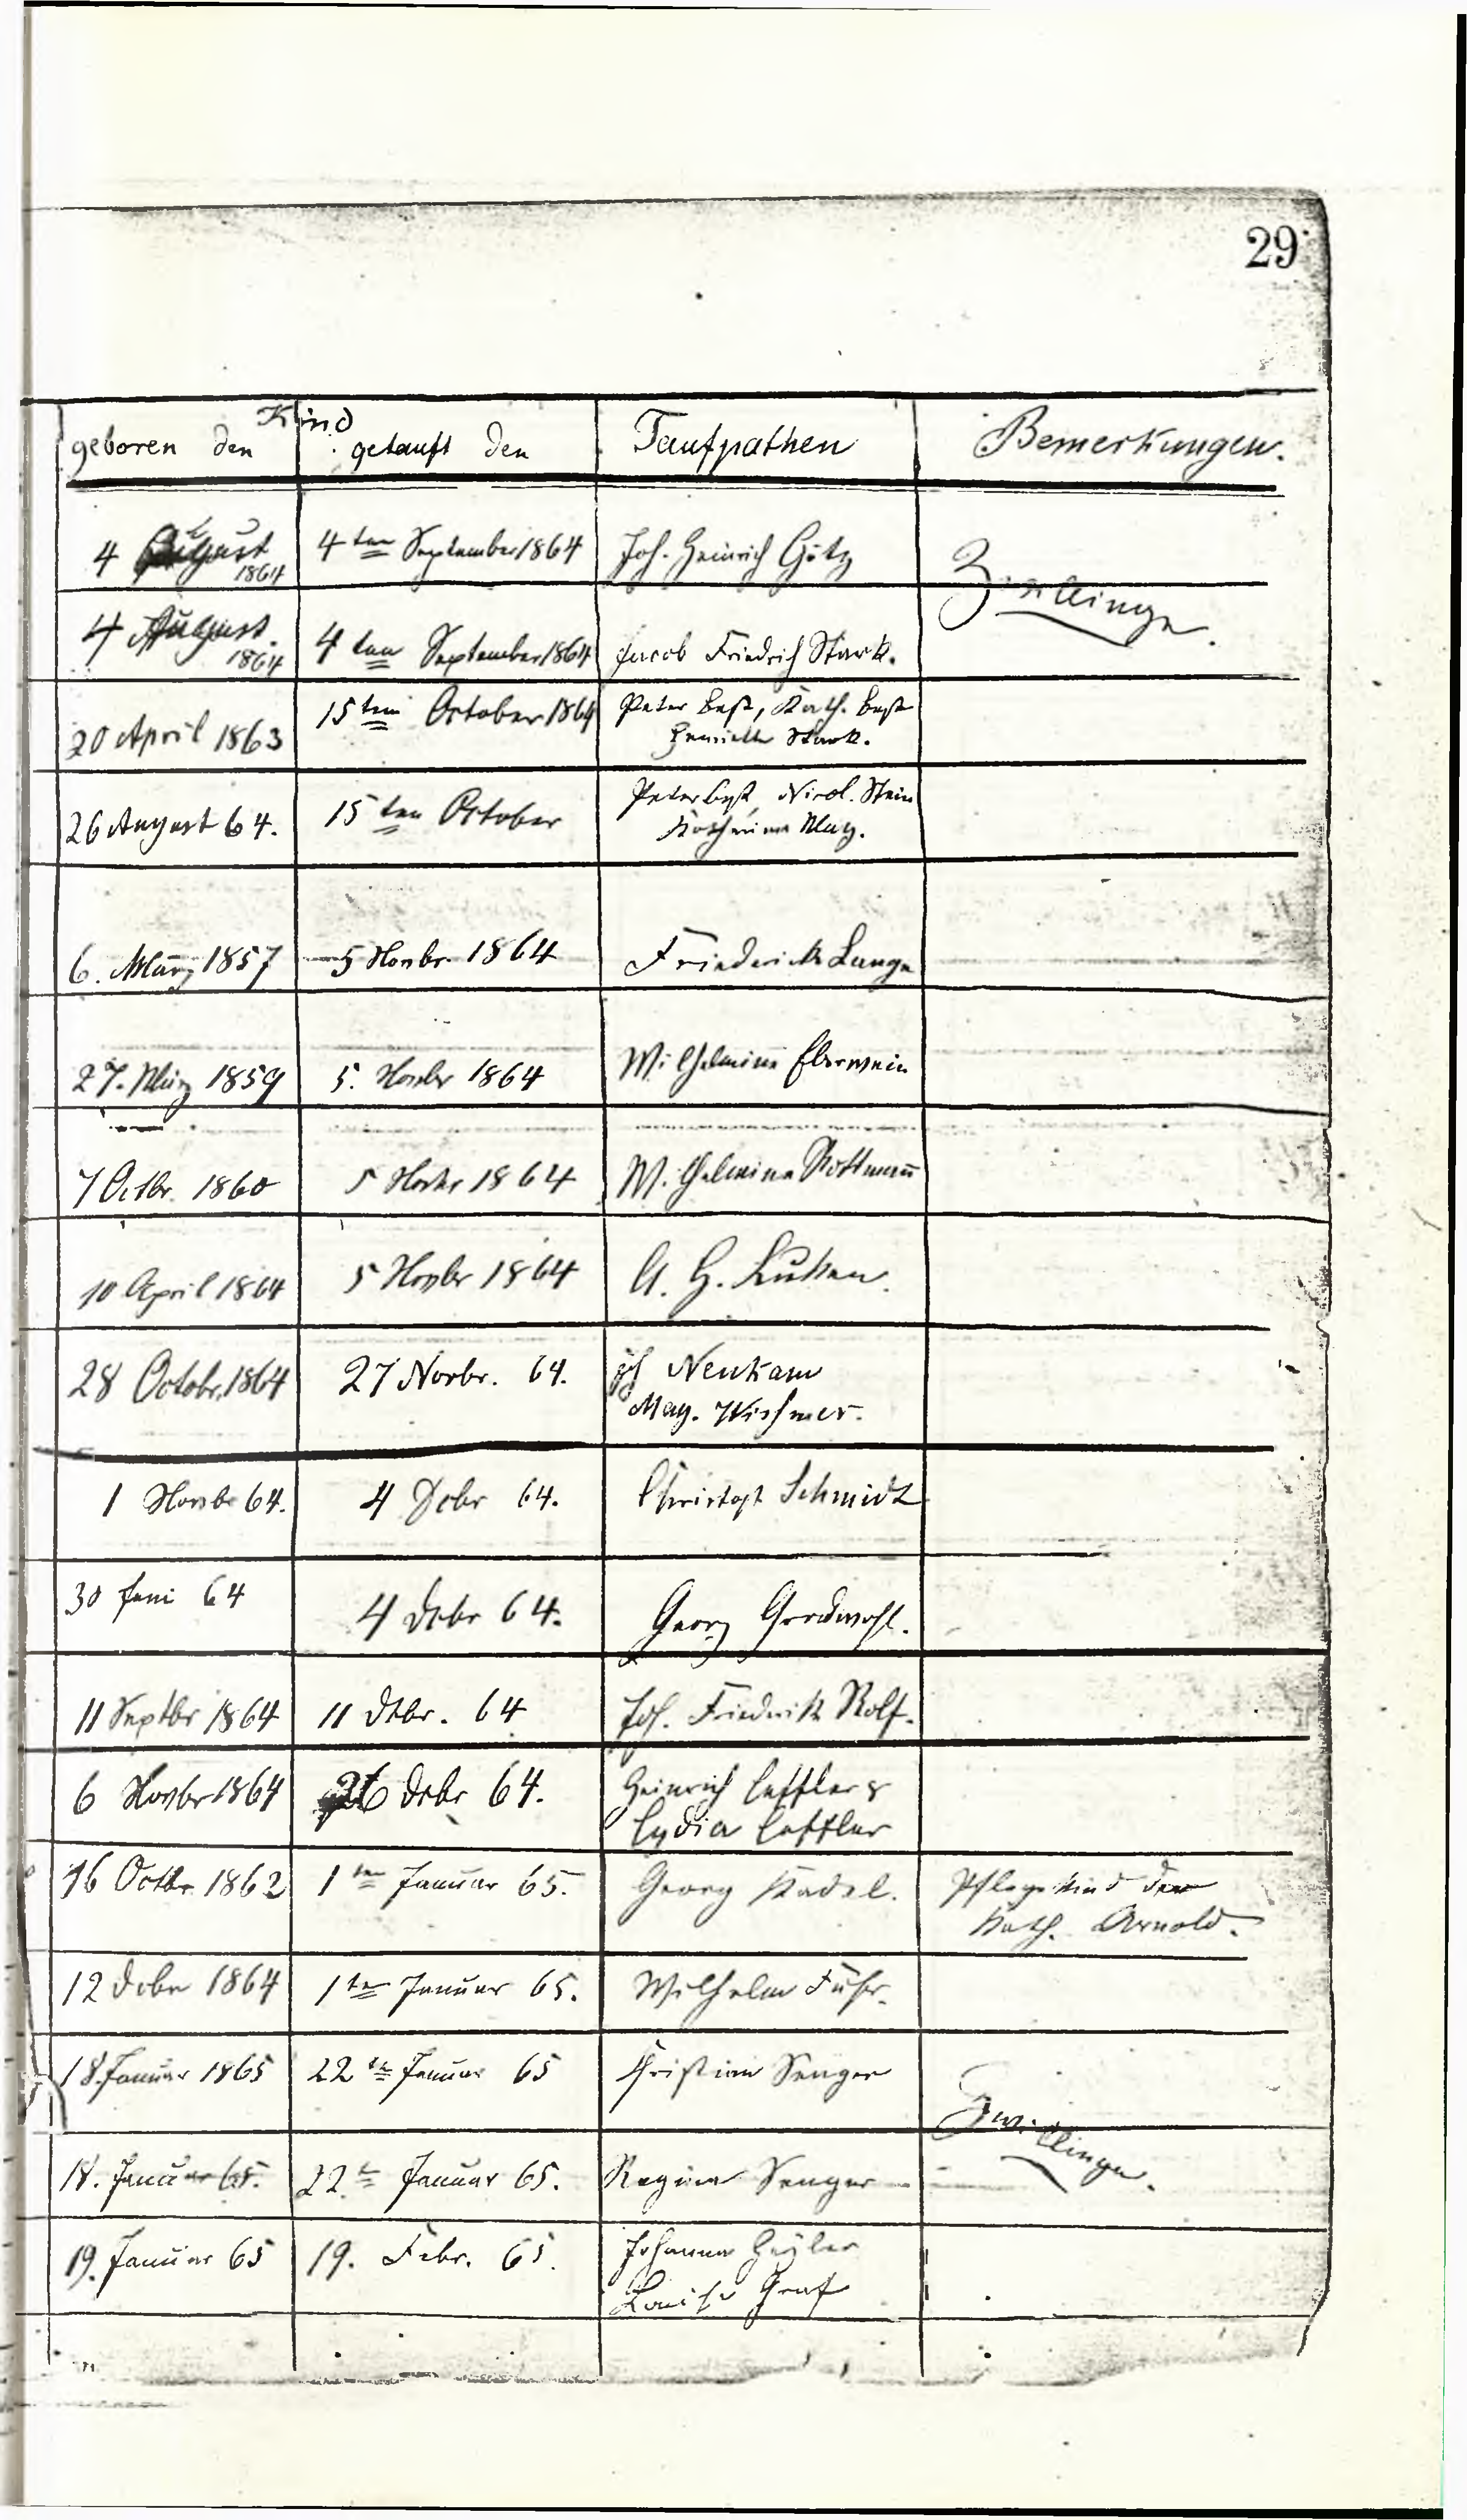 29
Kind
geboren den getauft den Taufpathen Bemerkungen.
4 August 1864 4ten September 1864 Joh. Heinrich Götz Zwillinge.
4 August 1864 4ten September 1864 Jacob Friedrich Stark.
20 April 1863 15ten October 1864 Peter Best, Kath. Best
Henriette Stark.
26 August 64. 15ten October Peter Best, Nicol. Stein
Katharina May.
6. März 1857 5 Novbr. 1864 Friedericke Lange
27. März 1859 5. Novbr 1864 Wilhelmine Eberwein
7 Octbr. 1860 5 Novbr 1864 Wilhelmina Rottmann
10 April 1864 5 Novbr 1864 A. H. Lüken.
28 Octobr. 1864 27 Novbr. 64. Neukam
Mag. Wissmer.
1 Novbr 64. 4 Decbr 64. Christoph Schmidt
30 Juni 64 4 Decbr 64. Georg
11 Septbr 1864 11 Dcbr. 64 Joh. Friedrich Rolf.
6 Novbr 1864 26 Decbr 64. Heinrich Leffler &
Lydia Leffler
16 Octbr. 1862 1ten Januar 65. Georg Kadel. Pflegekind der
Kath. Arnold.
12 Decbr 1864 1ten Januar 65. Wilhelm Fuhr.
18. Januar 1865 22te Januar 65 Christian Senger Zwillinge.
18. Januar 65. 22te Januar 65. Regina Senger
19. Januar 65 19. Febr. 65. Johanna
Louise Graf